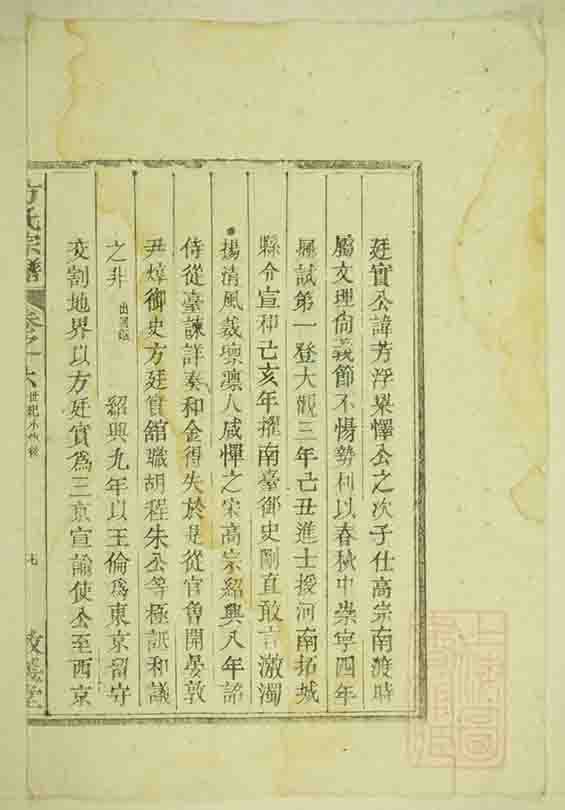 廷實公諱芳浮梁懌公之次子仕高宗南渡時
屬文理尙義節不惕勢利以春秋中崇寧四年
鄉試第一登大觀三年己丑進士授河南拓城
縣令宣和己亥年擢南臺御史剛直敢言激濁
揚清風裁凜凜人咸憚之宋高宗紹興八年詔
侍從臺諫詳奏和金得失於是從官曾開晏敦
尹焞御史方廷實舘職胡程朱公等極詆和議
之非 出國鑑 紹興九年以王倫爲東京留守
交割地界以方廷實爲三京宣諭使公至西京
方氏宗譜 卷之六 世紀小傳 七 敦義堂
上海圖